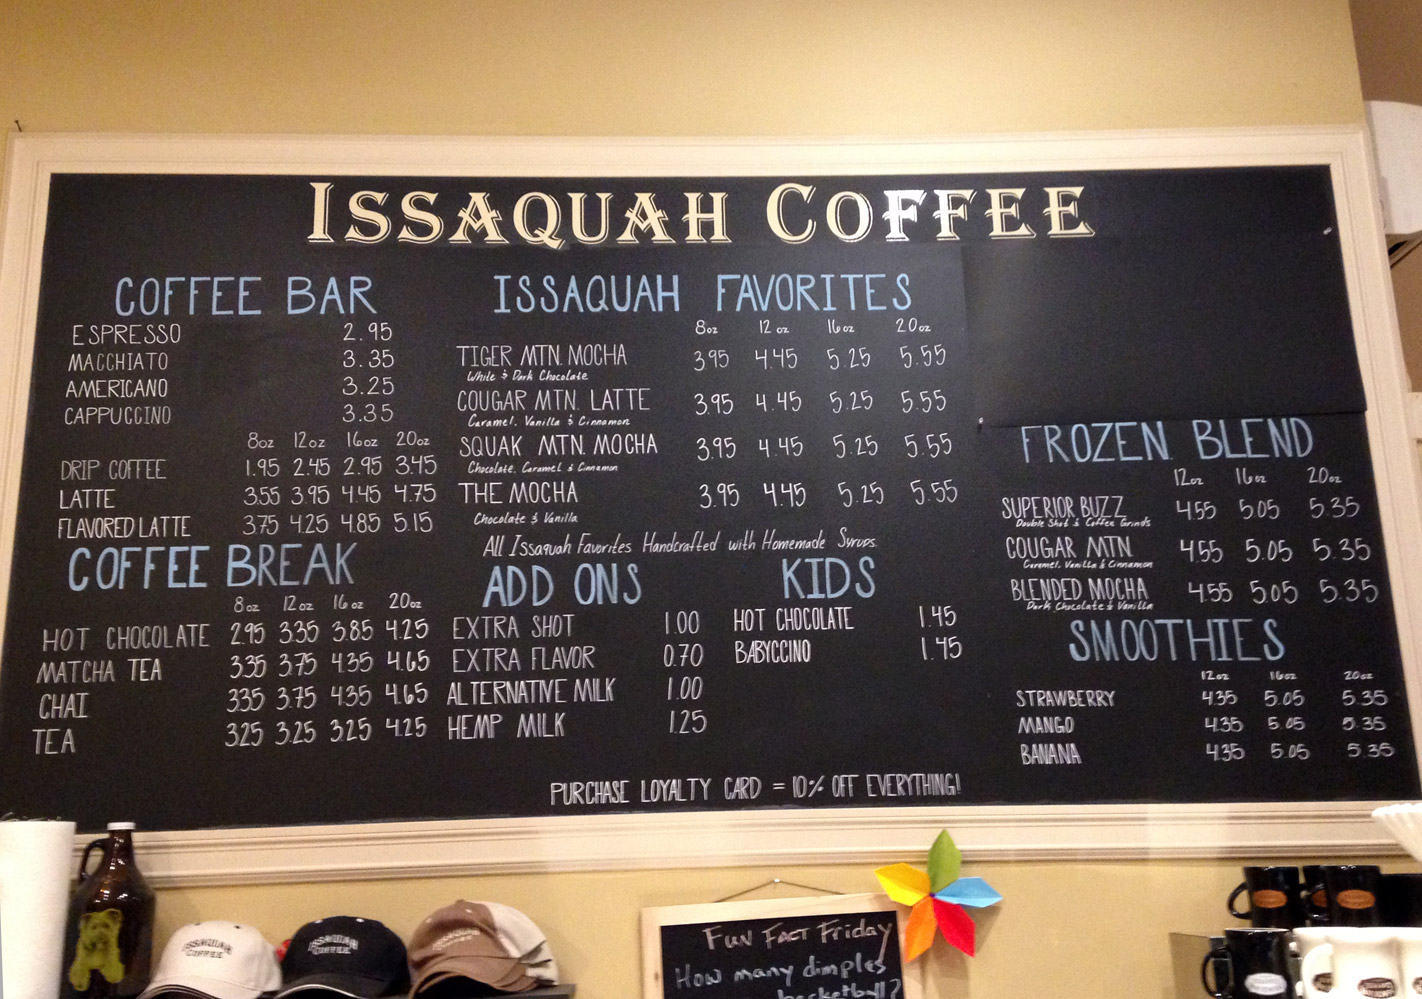 ISSAQUAH COFFEE
COFFEE BAR
ESPRESSO 2.95
MACCHIATO 3.35
AMERICANO 3.25
CAPPUCCINO 3.35
8oz 12oz 16oz 20oz
DRIP COFFEE 1.95 2.45 2.95 3.45
LATTE 3.55 3.95 4.45 4.75
FLAVORED LATTE 3.75 4.25 4.85 5.15
COFFEE BREAK
8oz 12oz 16oz 20oz
HOT CHOCOLATE 2.95 3.35 3.85 4.25
MATCHA TEA 3.35 3.75 4.35 4.65
CHAI 3.35 3.75 4.35 4.65
TEA 3.25 3.25 3.25 4.25
ISSAQUAH FAVORITES
8oz 12oz 16oz 20oz
TIGER MTN. MOCHA 3.95 4.45 5.25 5.55
White & Dark Chocolate
COUGAR MTN. LATTE 3.95 4.45 5.25 5.55
Caramel, Vanilla & Cinnamon
SQUAK MTN. MOCHA 3.95 4.45 5.25 5.55
Chocolate, Caramel & Cinnamon
THE MOCHA 3.95 4.45 5.25 5.55
Chocolate & Vanilla
All Issaquah Favorites Handcrafted with Homemade Syrups.
ADD ONS
EXTRA SHOT 1.00
EXTRA FLAVOR 0.70
ALTERNATIVE MILK 1.00
HEMP MILK 1.25
KIDS
HOT CHOCOLATE 1.45
BABYCCINO 1.45
FROZEN BLEND
12oz 16oz 20oz
SUPERIOR BUZZ 4.55 5.05 5.35
Double Shot & Coffee Grinds
COUGAR MTN 4.55 5.05 5.35
Caramel, Vanilla & Cinnamon
BLENDED MOCHA 4.55 5.05 5.35
Dark Chocolate & Vanilla
SMOOTHIES
12oz 16oz 20oz
STRAWBERRY 4.35 5.05 5.35
MANGO 4.35 5.05 5.35
BANANA 4.35 5.05 5.35
PURCHASE LOYALTY CARD = 10% OFF EVERYTHING!
ISSAQUAH
COFFEE
ISSAQUAH
COFFEE
Fun Fact Friday
How many dimples
basketball?